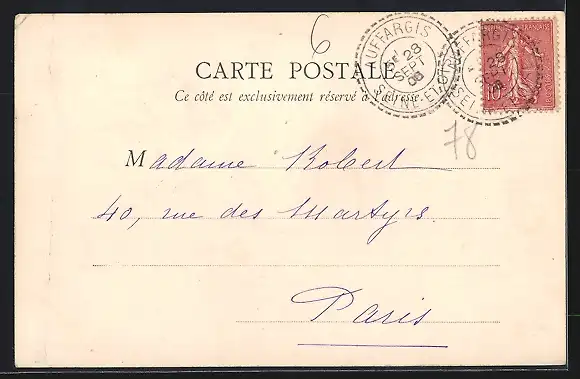 6
AUFFARGIS
28
SEPT
CARTE POSTALE
SEINE-ET-OISE
Ce côté est exclusivement réservé à l'adresse
10
78
Madame Robert
40, rue des Martyrs
Paris